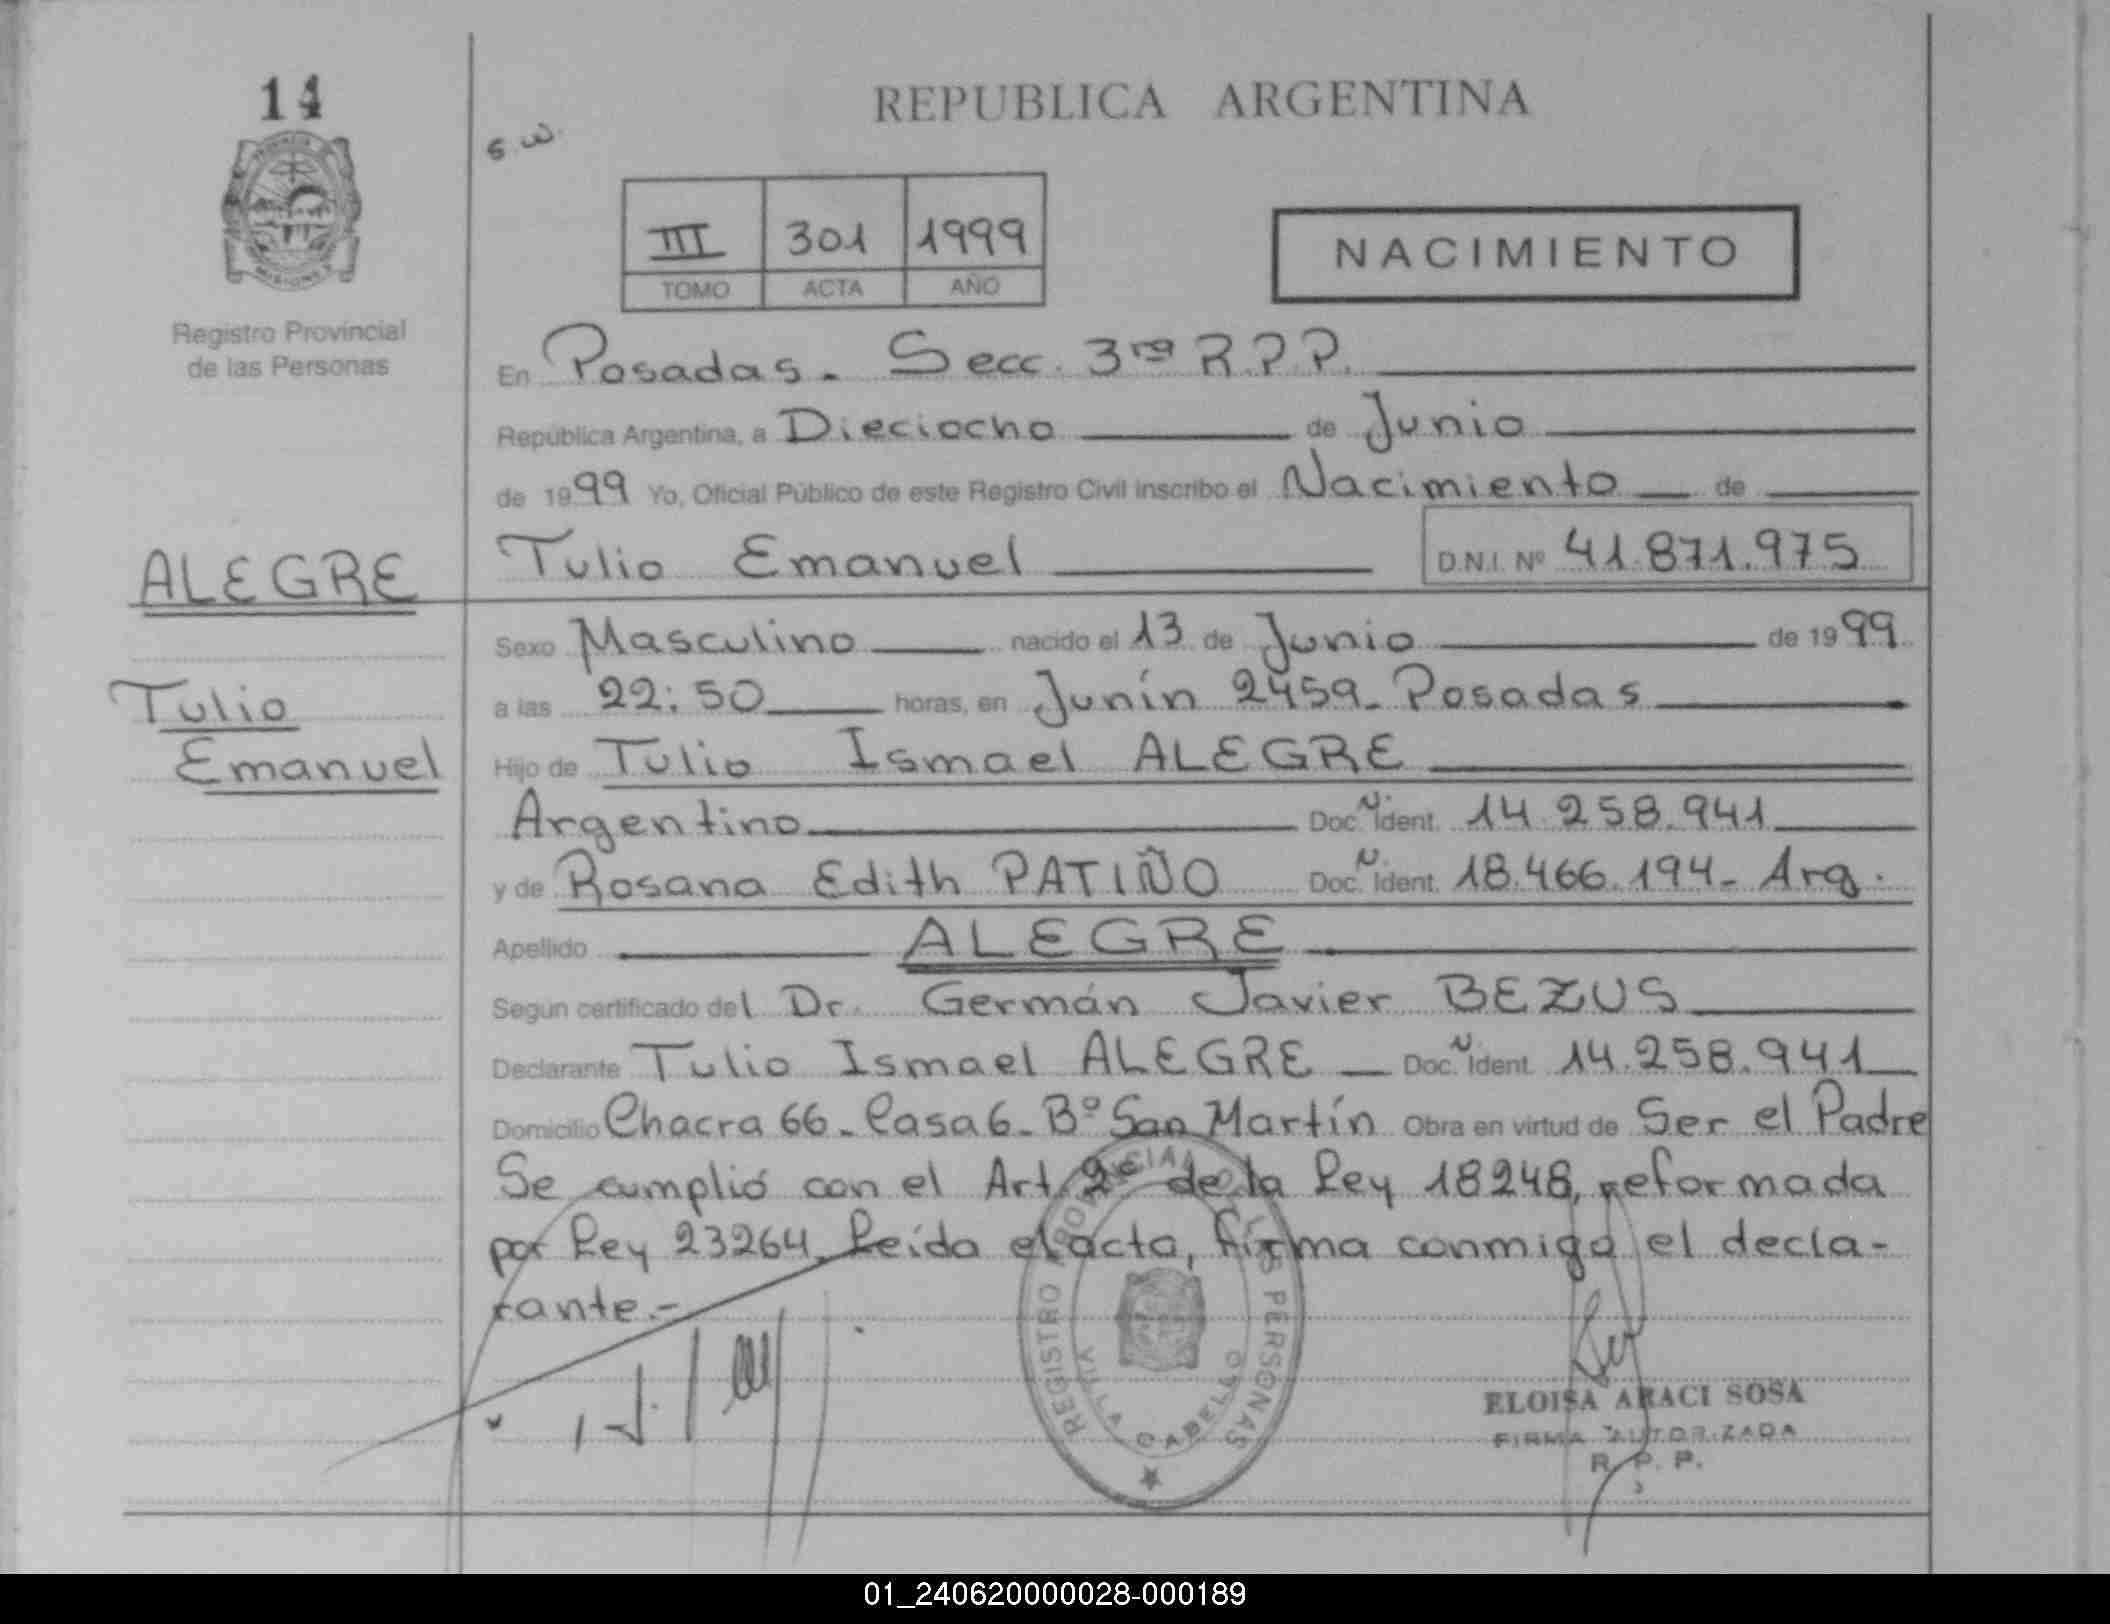 14
REPUBLICA ARGENTINA
s.w.
III 301 1999
TOMO ACTA AÑO
NACIMIENTO
Registro Provincial
de las Personas
En Posadas. Secc. 3ra R.P.P.
República Argentina, a Dieciocho de Junio
de 1999 Yo, Oficial Público de este Registro Civil inscribo el Nacimiento de
ALEGRE
Tulio Emanuel D.N.I. Nº 41.871.975
Sexo Masculino nacido el 13 de Junio de 1999
Tulio
a las 22:50 horas, en Junín 2459. Posadas
Emanuel
Hijo de Tulio Ismael ALEGRE
Argentino Doc. Ident. 14.258.941
y de Rosana Edith PATIÑO Doc. Ident. 18.466.194- Arg.
Apellido ALEGRE
Según certificado del Dr. Germán Javier BEZUS
Declarante Tulio Ismael ALEGRE Doc. Ident. 14.258.941
Domicilio Chacra 66. Casa 6. Bº San Martín Obra en virtud de Ser el Padre
Se cumplió con el Art. 2º de la Ley 18248, reformada
por Ley 23264. Leída el acta, firma conmigo el decla-
rante.-
REGISTRO PROVINCIAL DE LAS PERSONAS
VILLA CABELLO
ELOISA ARACI SOSA
FIRMA AUTORIZADA
R. P. P.
01_240620000028-000189